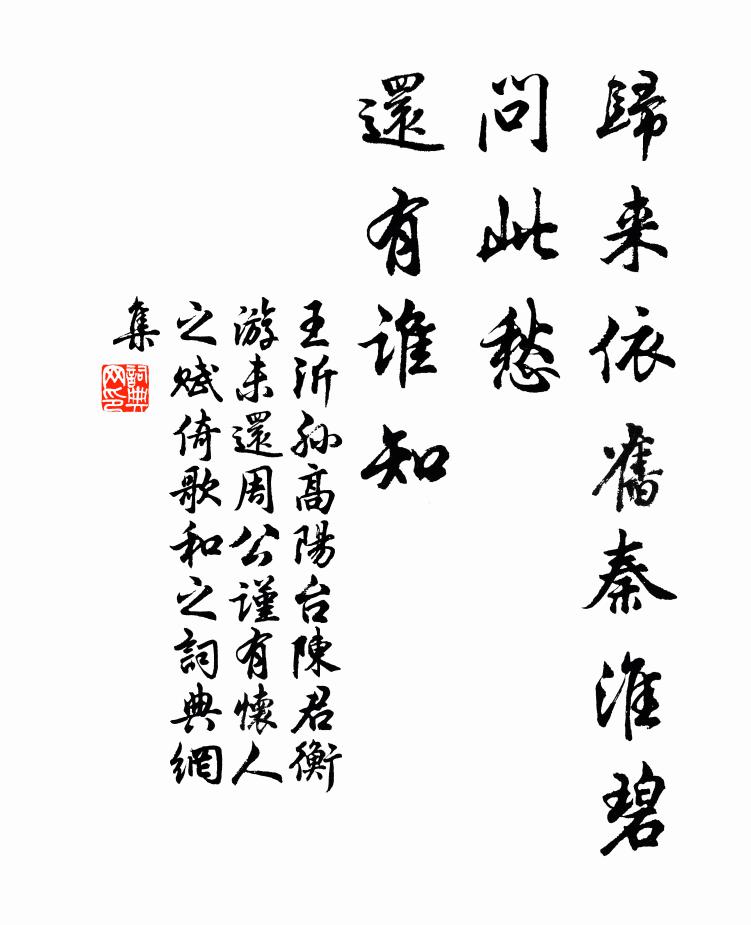 歸来依舊秦淮碧
問此愁
還有誰知
王沂孫高陽台陳君衡
游未還周公謹有懷人
之賦倚歌和之詞典網
集
詞典
网印